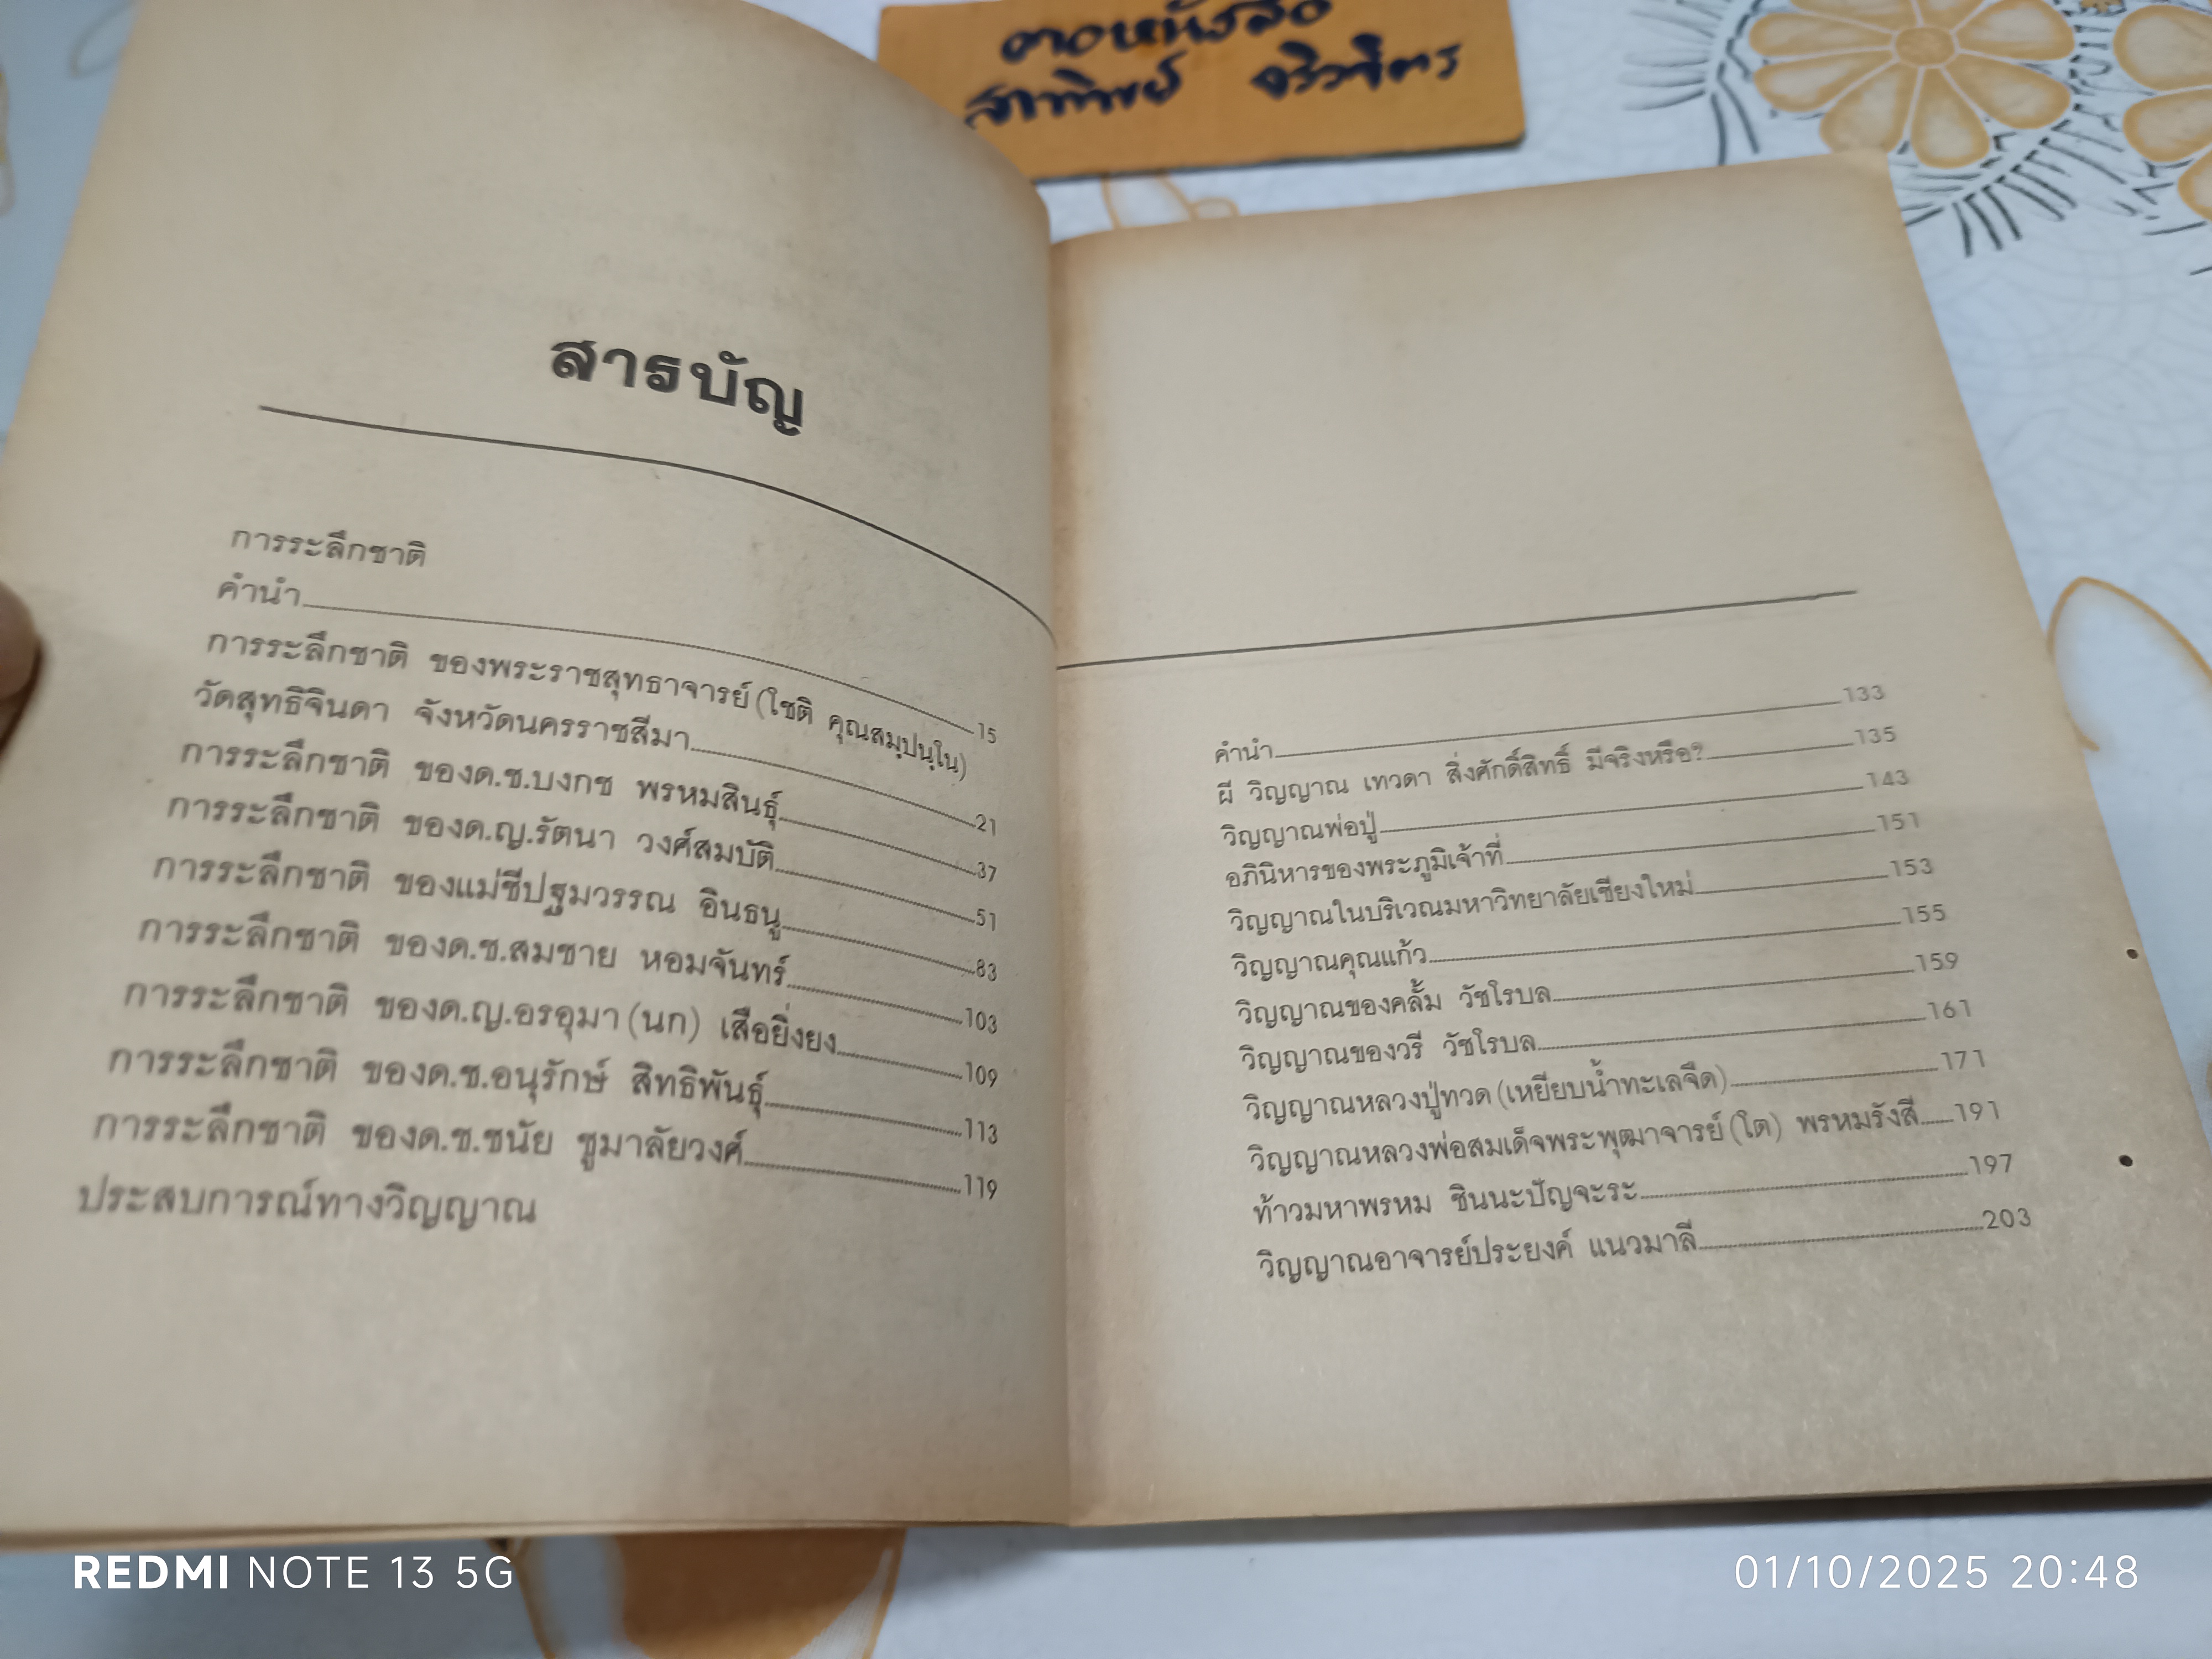 สารบัญ
การระลึกชาติ
คำนำ 15
การระลึกชาติ ของพระราชสุทธาจารย์ (โชติ คุณสมฺปนฺโน)
วัดสุทธิจินดา จังหวัดนครราชสีมา 21
การระลึกชาติ ของด.ช.บงกช พรหมสินธุ์ 37
การระลึกชาติ ของด.ญ.รัตนา วงศ์สมบัติ 51
การระลึกชาติ ของแม่ชีปฐมวรรณ อินธนู 83
การระลึกชาติ ของด.ช.สมชาย หอมจันทร์ 103
การระลึกชาติ ของด.ญ.อรอุมา (นก) เสือยิ่งยง 109
การระลึกชาติ ของด.ช.อนุรักษ์ สิทธิพันธุ์ 113
การระลึกชาติ ของด.ช.ชนัย ชูมาลัยวงศ์ 119
ประสบการณ์ทางวิญญาณ
คำนำ 133
ผี วิญญาณ เทวดา สิ่งศักดิ์สิทธิ์ มีจริงหรือ? 135
วิญญาณพ่อปู่ 143
อภินิหารของพระภูมิเจ้าที่ 151
วิญญาณในบริเวณมหาวิทยาลัยเชียงใหม่ 153
วิญญาณคุณแก้ว 155
วิญญาณของคลั้ม วัชโรบล 159
วิญญาณของวรี วัชโรบล 161
วิญญาณหลวงปู่ทวด (เหยียบน้ำทะเลจืด) 171
วิญญาณหลวงพ่อสมเด็จพระพุฒาจารย์ (โต) พรหมรังสี 191
ท้าวมหาพรหม ชินนะปัญจะระ 197
วิญญาณอาจารย์ประยงค์ แนวมาลี 203
REDMI NOTE 13 5G
01/10/2025 20:48